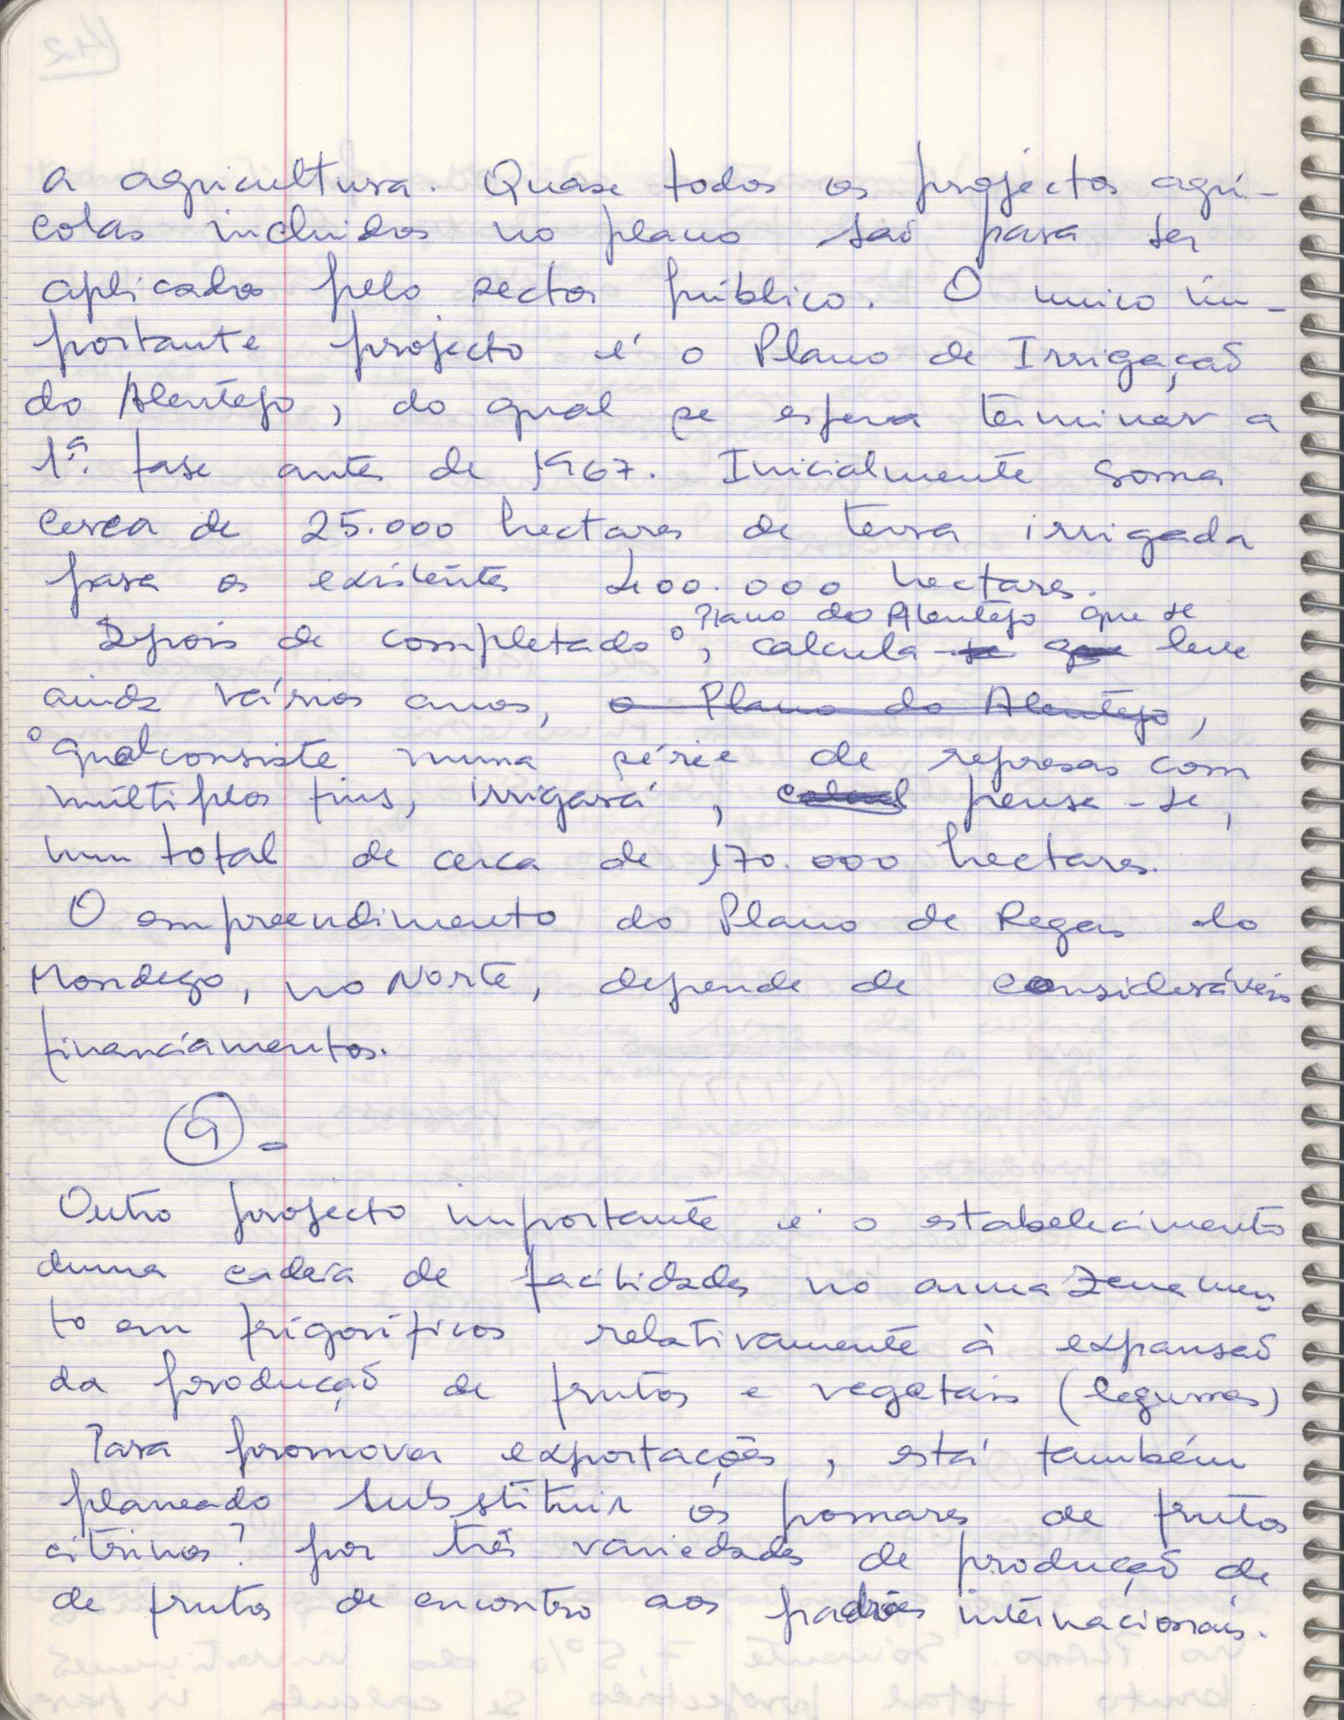 a agricultura. Quase todos os projectos agrí-
colas incluidos no plano são para ser
aplicados pelo sector público. O unico im-
portante projecto é o Plano de Irrigação
do Alentejo, do qual se espera terminar a
1ª. fase antes de 1967. Inicialmente soma
cerca de 25.000 hectares de terra irrigada
para os existentes 400.000 hectares.
Plano do Alentejo que se
Depois de completado o, calcula-se que leve
ainda vários anos, o Plano do Alentejo,
o qual consiste numa série de represas com
múltiplos fins, irrigará, pensa-se,
num total de cerca de 170.000 hectares.
O empreendimento do Plano de Regas do
Mondego, no Norte, depende de consideráveis
financiamentos.
9-
Outro projecto importante é o estabelecimento
duma cadeia de facilidades no armazenamen-
to em frigoríficos relativamente à expansão
da produção de frutos e vegetais (legumes)
Para promover exportações, está também
planeado substituir os pomares de frutos
citrinos? por três variedades de produção de
de frutos de encontro aos padrões internacionais.